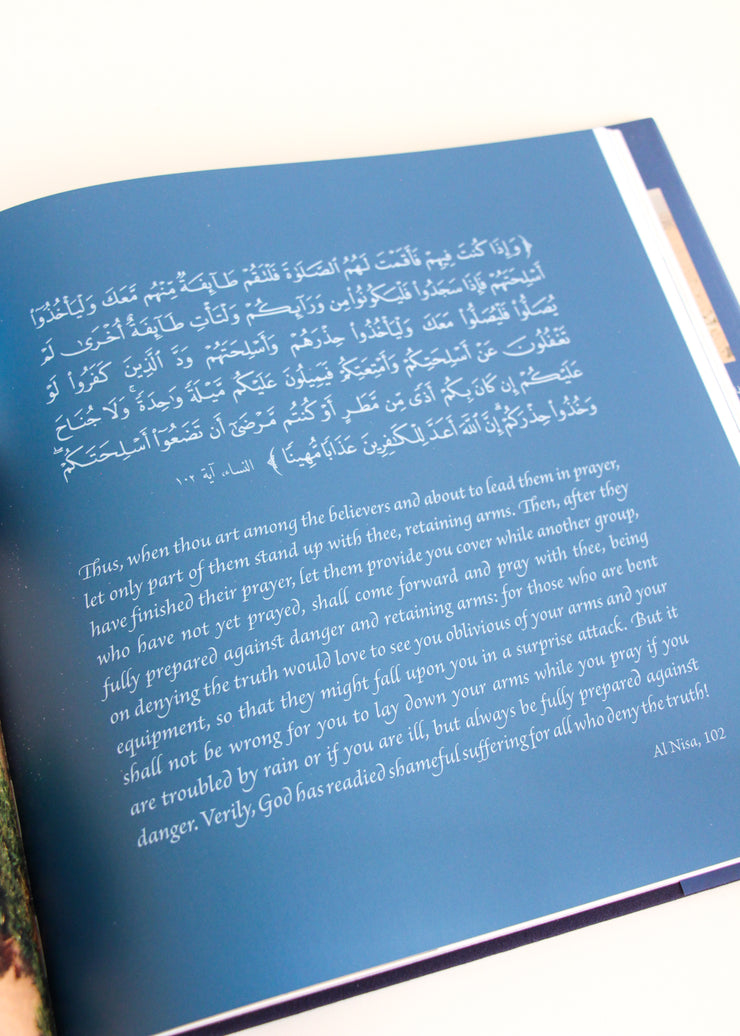 ﴿ وَإِذَا كُنتَ فِيهِمْ فَأَقَمْتَ لَهُمُ ٱلصَّلَوٰةَ فَلْتَقُمْ طَآئِفَةٌ مِّنْهُم مَّعَكَ وَلْيَأْخُذُوٓا۟
أَسْلِحَتَهُمْ فَإِذَا سَجَدُوا۟ فَلْيَكُونُوا۟ مِن وَرَآئِكُمْ وَلْتَأْتِ طَآئِفَةٌ أُخْرَىٰ لَمْ
يُصَلُّوا۟ فَلْيُصَلُّوا۟ مَعَكَ وَلْيَأْخُذُوا۟ حِذْرَهُمْ وَأَسْلِحَتَهُمْ وَدَّ ٱلَّذِينَ كَفَرُوا۟ لَوْ
تَغْفُلُونَ عَنْ أَسْلِحَتِكُمْ وَأَمْتِعَتِكُمْ فَيَمِيلُونَ عَلَيْكُم مَّيْلَةً وَٰحِدَةً ۚ وَلَا جُنَاحَ
عَلَيْكُمْ إِن كَانَ بِكُمْ أَذًى مِّن مَّطَرٍ أَوْ كُنتُم مَّرْضَىٰٓ أَن تَضَعُوٓا۟ أَسْلِحَتَكُمْ ۖ
وَخُذُوا۟ حِذْرَكُمْ ۗ إِنَّ ٱللَّهَ أَعَدَّ لِلْكَٰفِرِينَ عَذَابًا مُّهِينًا ﴾ النساء، آية ١٠٢
Thus, when thou art among the believers and about to lead them in prayer,
let only part of them stand up with thee, retaining arms. Then, after they
have finished their prayer, let them provide you cover while another group,
who have not yet prayed, shall come forward and pray with thee, being
fully prepared against danger and retaining arms: for those who are bent
on denying the truth would love to see you oblivious of your arms and your
equipment, so that they might fall upon you in a surprise attack. But it
shall not be wrong for you to lay down your arms while you pray if you
are troubled by rain or if you are ill, but always be fully prepared against
danger. Verily, God has readied shameful suffering for all who deny the truth!
Al Nisa, 102